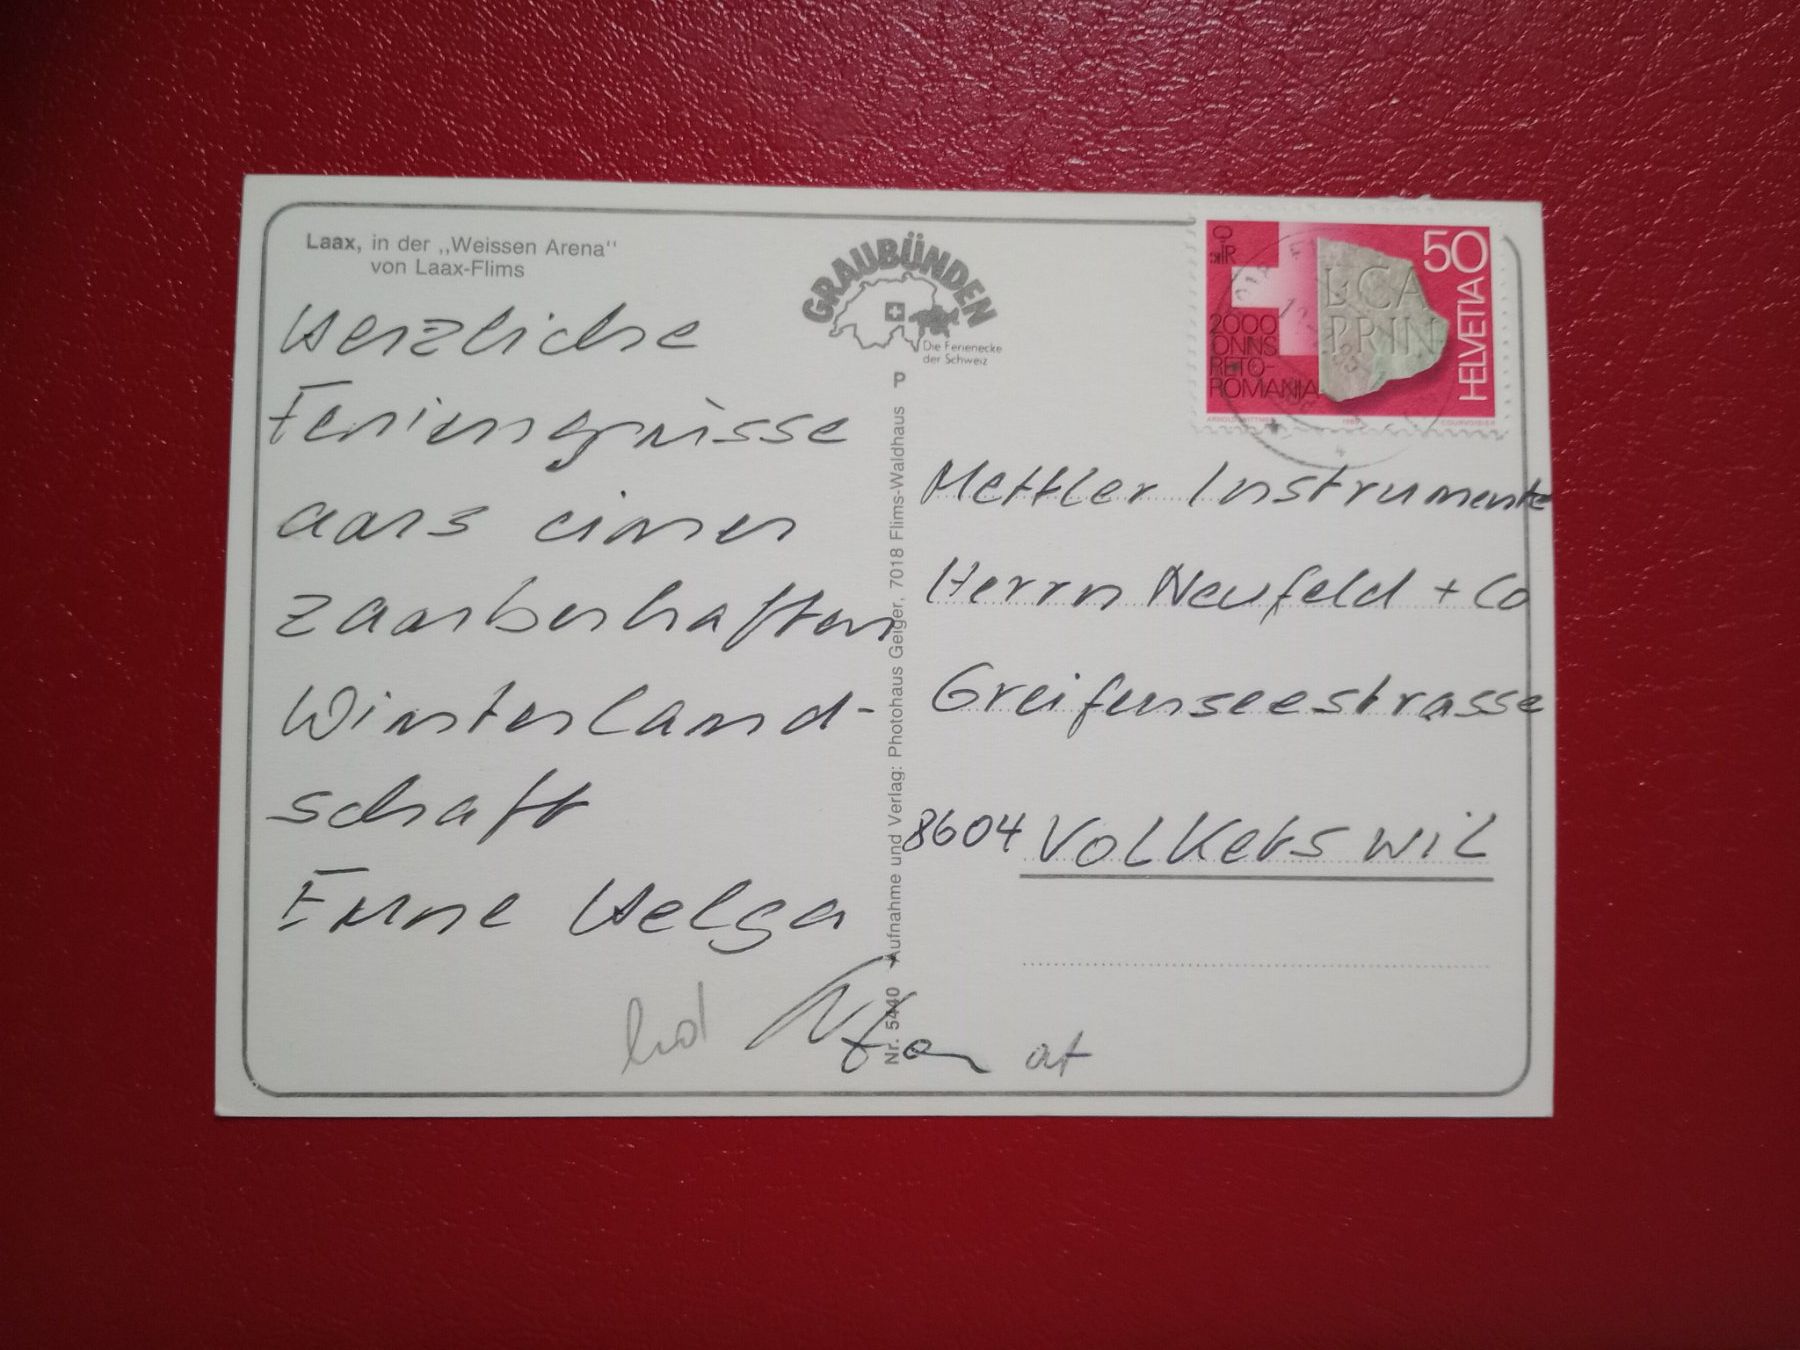 Laax, in der „Weissen Arena"
von Laax-Flims
Herzliche
Feriengrüsse
aus einer
zauberhaften
Winterland-
schaft
Eure Helga
GRAUBÜNDEN
Die Ferienecke
der Schweiz
P
Nr. 5440 Aufnahme und Verlag: Photohaus Geiger, 7018 Flims-Waldhaus
50
HELVETIA
2000
ONNS
RETO-
ROMANIA
L·CA
PRIN
COURVOISIER
Mettler Instrumente
Herrn Neufeld + Co
Greifenseestrasse
8604 Volketswil